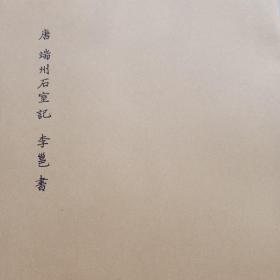 唐 端州石室記 李邕書